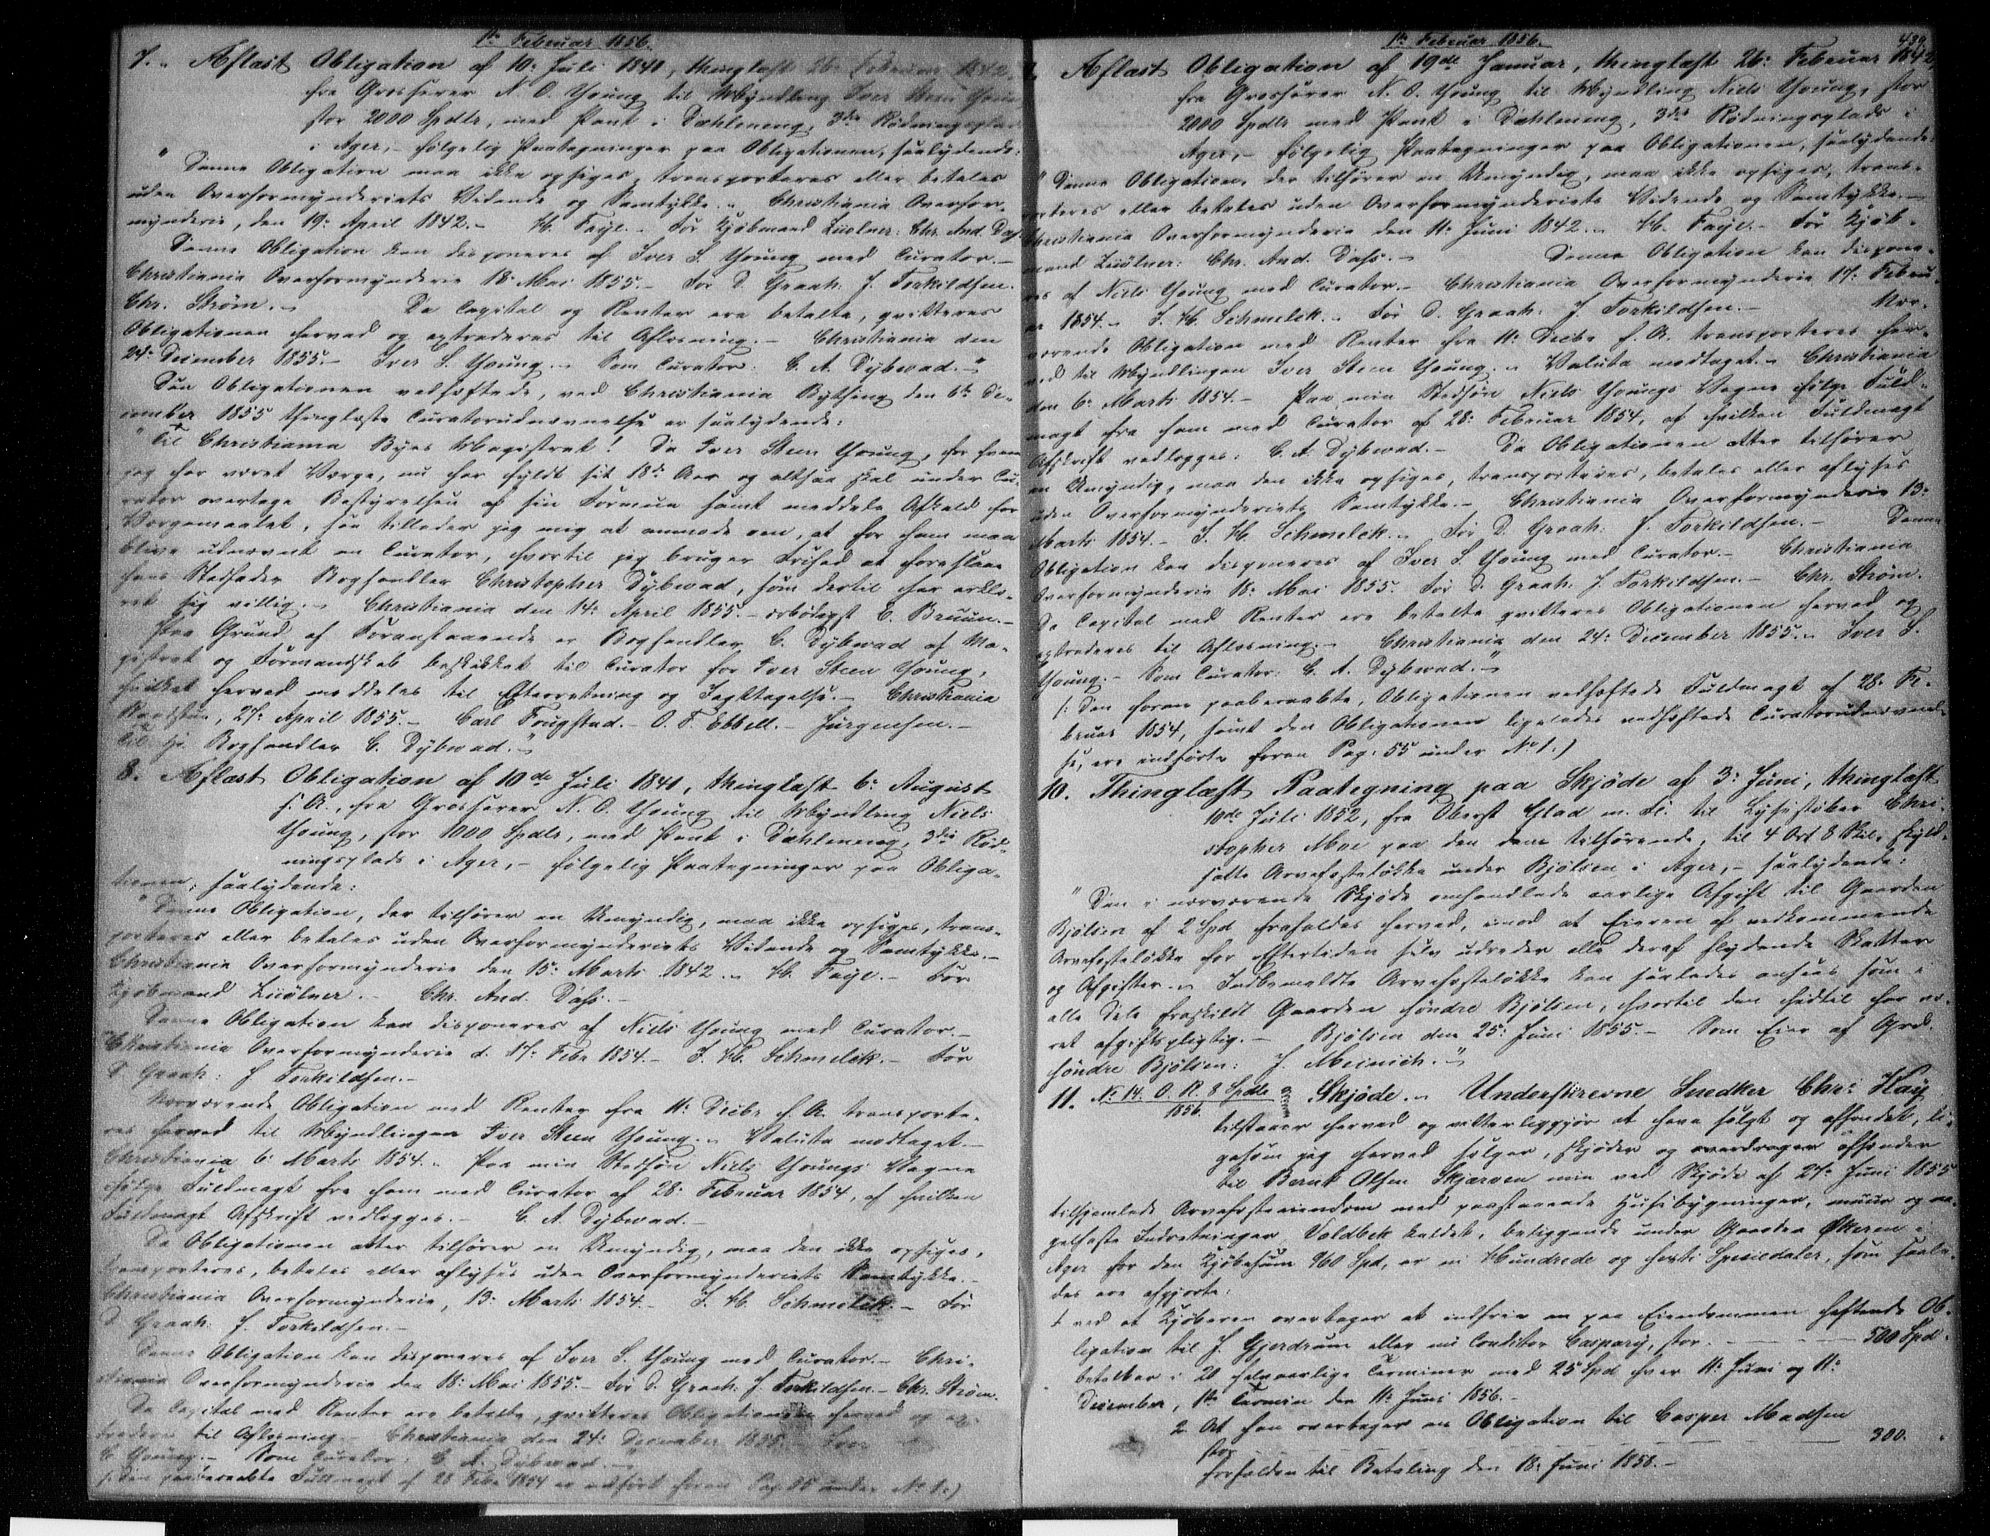 1ste Februar 1856.
7. Aflæst Obligation af 10. Juli 1841, thinglæst 26. Februar 1842,
fra Grosserer N. O. Young til Myndling Iver Steen Young
stor 2000 Spdlr, med Pant i Dæhleneng, 3die Rødningsplads
i Ager, – følgelig Paategninger paa Obligationen, saalydende:
"Denne Obligation maa ikke opsiges, transporteres eller betales
uden Overformynderiets Vidende og Samtykke. – Christiania Overfor-
mynderie, den 19. April 1842. – H. Faye. – For Kjøbmand Züølner: Chr. And. Dass.
Denne Obligation kan disponeres af Iver S. Young med Curator. –
Christiania Overformynderie 18. Mai 1855. – For D. Graah: J. Torkildsen.
Chr. Strøm. – Da Capital og Renter ere betalte, qvitteres
Obligationen herved og extraderes til Aflæsning. – Christiania den
24de December 1855. – Iver S. Young. – Som Curator: C. A. Dybwad."
Den Obligationen vedhæftede, ved Christiania Bything den 6te De-
cember 1855 thinglæste Curatorudnævnelse er saalydende:
"Til Christiania Byes Magistrat! Da Iver Steen Young, for hvem
jeg har været Værge, nu har fyldt sit 18de Aar og altsaa skal under Cu-
rator overtage Bestyrelsen af sin Formue samt meddele Afkald for
Værgemaalet, saa tillader jeg mig at anmode om, at for ham maa
blive udnævnt en Curator, hvortil jeg bruger Frihed at foreslaae
hans Stedfader Boghandler Christopher Dybwad, som dertil har erklæ-
ret sig villig. – Christiania den 14. April 1855. – ærbødigst E. Bruun. –
Paa Grund af Foranstaaende er Boghandler C. Dybwad af Ma-
gistrat og Formandskab beskikket til Curator for Iver Steen Young,
hvilket herved meddeles til Efterretning og Iagttagelse. – Christiania
Raadstue, 27. April 1855. – Carl Fougstad. – O. T. Ebbell. – Jürgensen. –
Til Hr. Boghandler C. Dybwad."
8. Aflæst Obligation af 10de Juli 1841, thinglæst 6. August
s. A., fra Grosserer N. O. Young til Myndling Niels
Young, stor 1000 Spdlr, med Pant i Dæhleneng, 3die Rød-
ningsplads i Ager, – følgelig Paategninger paa Obliga-
tionen, saalydende:
"Denne Obligation, der tilhører en Umyndig, maa ikke opsiges, trans-
porteres eller betales uden Overformynderiets Vidende og Samtykke. –
Christiania Overformynderie den 15. Marts 1842. – H. Faye. – For
Kjøbmand Züølner. – Chr. And. Dass. –
Denne Obligation kan disponeres af Niels Young med Curator. –
Christiania Overformynderie d. 17. Febr 1854. – J. H. Schmelck. – For
D. Graah: J. Torkildsen. –
Nærværende Obligation med Renter fra 11. Decbr f. A. transporte-
res herved til Myndlingen Iver Steen Young. – Valuta modtaget. –
Christiania 6. Marts 1854. – Paa min Stedsøn Niels Youngs Vegne
ifølge Fuldmagt fra ham med Curator af 28. Februar 1854, af hvilken
Fuldmagt Afskrift vedlægges. – C. A. Dybwad. –
Da Obligationen atter tilhører en Umyndig, maa den ikke opsiges,
transporteres, betales eller aflyses uden Overformynderiets Samtykke. –
Christiania Overformynderie, 13. Marts 1854. – J. H. Schmelck. – For
D. Graah: J. Torkildsen. –
Denne Obligation kan disponeres af Iver S. Young med Curator. – Chri-
stiania Overformynderie den 18. Mai 1855. – For D. Graah: J. Torkildsen. – Chr. Strøm.
Da Capital med Renter ere betalte, qvitteres Obligationen herved og ex-
traderes til Aflæsning. – Christiania den 24. December 1855. – Iver
S. Young. – Som Curator: C. A. Dybwad. –"
/: Den paaberaabte Fuldmagt af 28 Febr 1854 er indført foran Pag. 55 under No 1. :/
1ste Februar 1856.
439
9. Aflæst Obligation af 19de Januar, thinglæst 26. Februar 1842,
fra Grosserer N. O. Young til Myndling Niels Young, stor
2000 Spdlr med Pant i Dæhleneng, 3die Rødningsplads i
Ager, – følgelig Paategninger paa Obligationen, saalydende:
"Denne Obligation, der tilhører en Umyndig, maa ikke opsiges, trans-
porteres eller betales uden Overformynderiets Vidende og Samtykke. –
Christiania Overformynderie den 11. Juni 1842. – H. Faye. – For Kjøb-
mand Züølner: Chr. And. Dass. – Denne Obligation kan dispone-
res af Niels Young med Curator. – Christiania Overformynderie 17. Febru-
ar 1854. – J. H. Schmelck. – For D. Graah: J. Torkildsen. – Nær-
værende Obligation med Renter fra 11. Decbr f. A. transporteres her-
ved til Myndlingen Iver Steen Young. – Valuta modtaget. – Christiania
den 6. Marts 1854. – Paa min Stedsøn Niels Youngs Vegne ifølge Fuld-
magt fra ham med Curator af 28. Februar 1854, af hvilken Fuldmagt
Afskrift vedlægges: C. A. Dybwad. – Da Obligationen atter tilhører
en Umyndig, maa den ikke opsiges, transporteres, betales eller aflyses
uden Overformynderiets Samtykke. – Christiania Overformynderie 13.
Marts 1854. – J. H. Schmelck. – For D. Graah: J. Torkildsen. – Denne
Obligation kan disponeres af Iver S. Young med Curator. – Christiania
Overformynderie 18. Mai 1855. For D. Graah: J. Torkildsen. – Chr. Strøm.
Da Capital med Renter ere betalte qvitteres Obligationen herved og
extraderes til Aflæsning. – Christiania den 24. December 1855. – Iver S.
Young. – Som Curator: C. A. Dybwad. –"
/: Den foran paaberaabte, Obligationen vedhæftede Fuldmagt af 28. Fe-
bruar 1854, samt den Obligationen ligeledes vedhæftede Curatorudnævnel-
se, ere indførte foran Pag. 55 under No 1. :/
10. Thinglæst Paategning paa Skjøde af 3. Juni, thinglæst
10de Juli 1852, fra Oberst Glad m. Fl. til Lysestøber Chri-
stopher Moe paa den dem tilhørende, til 4 Ort 8 Skil. skyld-
satte Arvefæsteløkke under Bjølsen i Ager, – saalydende:
"Den i nærværende Skjøde omhandlede aarlige Afgift til Gaarden
Bjølsen af 2 Spd frafaldes herved, imod at Eieren af vedkommende
Arvefæsteløkke for Eftertiden selv udreder alle deraf flydende Skatter
og Afgifter. – Indbemeldte Arvefæsteløkke kan saaledes ansees som i
alle Dele fraskildt Gaarden søndre Bjølsen, hvortil den hidtil har væ-
ret afgiftspligtig. – Bjølsen den 25. Juni 1855. – Som Eier af Grd.
søndre Bjølsen: J. Meinich. –"
11. No 14. O. R. 8 Spdlr 1856. Skjøde. – Underskrevne Snedker Chr. Hay
tilstaaer herved og vitterliggjør at have solgt og afhændet, li-
gesom jeg herved sælger, skjøder og overdrager afhænder
til Bernt Olsen Skjærven min ved Skjøde af 27. Juni 1855
tilhjemlede Arvefæsteeiendom med paastaaende Huusbygninger, muur og na-
gelfaste Indretninger, Voldbek kaldet, beliggende under Gaarden Økern i
Ager for den Kjøbesum 960 Spd, er ni Hundrede og sexti Speciedaler, som saale-
des ere afgjorte:
1 ved at Kjøberen overtager at indfrie en paa Eiendommen heftende Ob-
ligation til J. Gjerdrum eller nu Conditor Caspary, stor – – – 500 Spd.
betalbar i 20 halvaarlige Terminer med 25 Spd hver 11. Juni og 11.
December, 1ste Termin den 11. Juni 1856. –
2. At han overtager en Obligation til Casper Madsen
stor – – – 300.
forfalden til Betaling den 18. Juni 1856. –